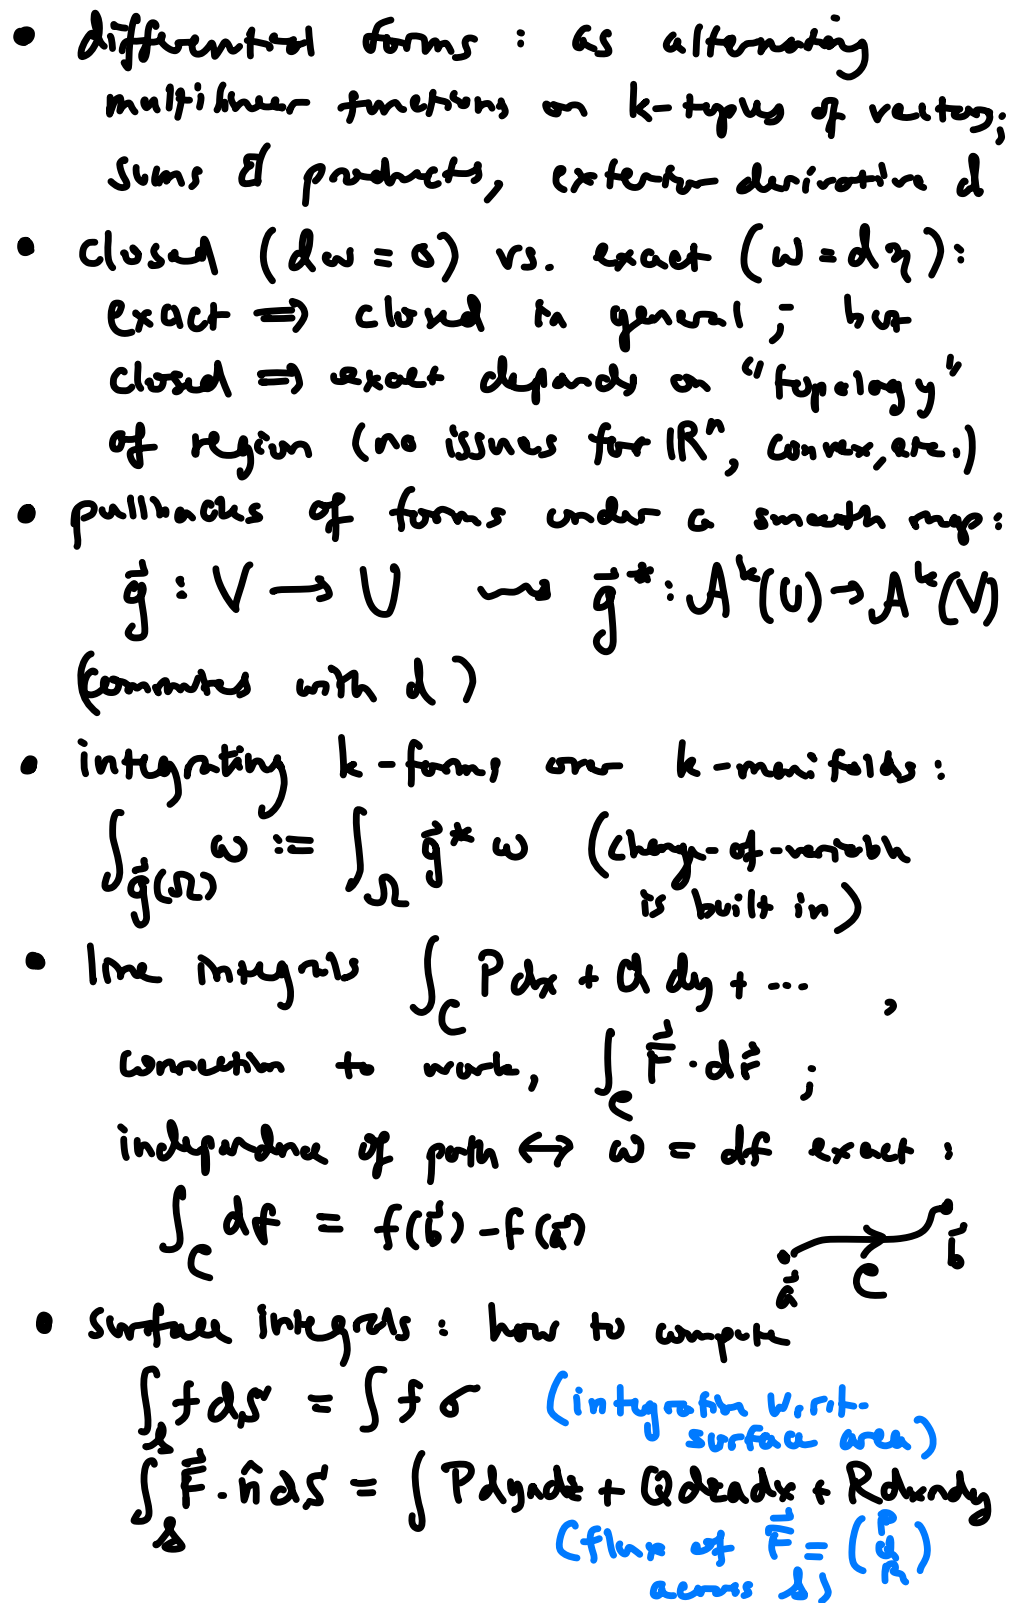 • differential forms : as alternating
multilinear functions on k-tuples of vectors;
sums & products, exterior derivative d
• closed (dω = 0) vs. exact (ω = dη):
exact ⟹ closed in general; but
closed ⟹ exact depends on "topology"
of region (no issues for ℝⁿ, convex, etc.)
• pullbacks of forms under a smooth map:
g⃗ : V → U ⇝ g⃗* : Aᵏ(U) → Aᵏ(V)
(commutes with d)
• integrating k-forms over k-manifolds:
∫_{g⃗(Ω)} ω := ∫_Ω g⃗* ω (change-of-variable
is built in)
• line integrals ∫_C P dx + Q dy + ... ,
connection to work, ∫_C F⃗ · dr⃗ ;
independence of path ↔ ω = df exact :
∫_C df = f(b⃗) - f(a⃗)
a⃗ C b⃗
• surface integrals : how to compute
∫_S f dS = ∫ f σ (integration w.r.t.
surface area)
∫_S F⃗ · n̂ dS = ∫ P dy∧dz + Q dz∧dx + R dx∧dy
(flux of F⃗ = (P Q R)
across S)